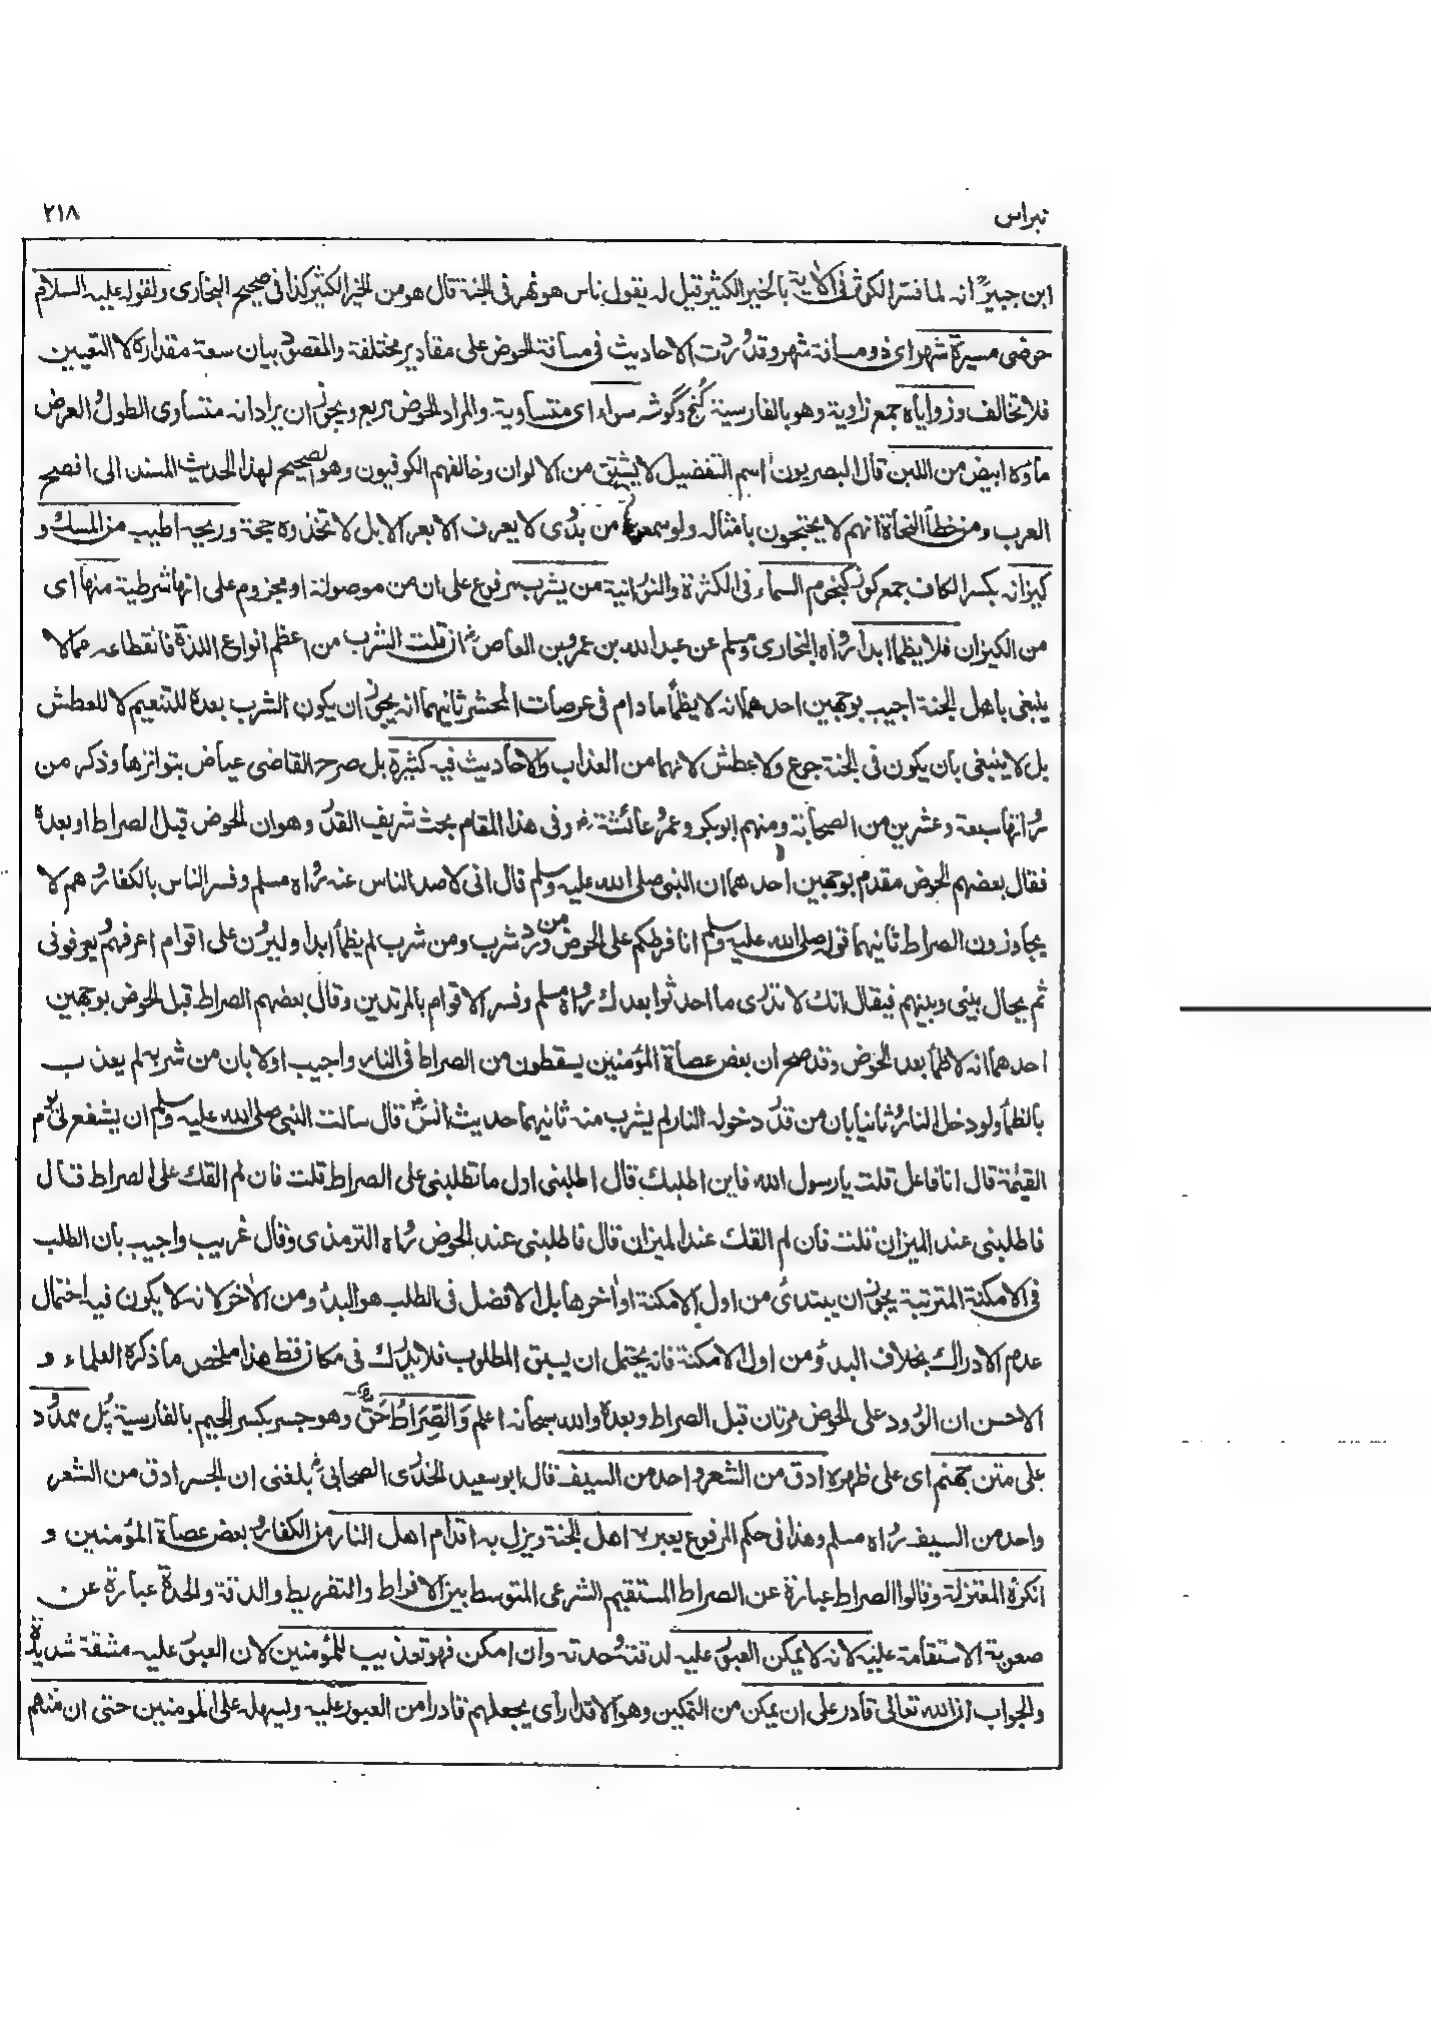 نبراس ٢١٨
ابن جبيرؓ انه لما فسر الكوثر فى الآية بالخير الكثير قيل له يقول ناس هو نهر فى الجنة قال هو من الخير الكثير كذا فى صحيح البخارى ولقوله عليه السلام
حوضى مسيرة شهر اى ذو مسافة شهر وقد وردت الاحاديث فى مسافة الحوض على مقادير مختلفة والمقصود بيان سعة مقداره لا التعيين
فلا تخالف وزواياه جمع زاوية وهو بالفارسية كُنج وگوشه سواء اى متساوية والمراد الحوض مربع ويجوز ان يراد انه متساوى الطول والعرض
ماؤه ابيض من اللبن قال البصريون اسم التفضيل لا يشتق من الالوان وخالفهم الكوفيون وهو الصحيح لهذا الحديث المسند الى افصح
العرب ومن خطأ النحاة انهم لا يحتجون بامثاله ولو سمعوا من بدوى لا يعرف الا بعر الابل لاتخذوه حجة وريحه اطيب من المسك و
كيزانه بكسر الكاف جمع كوز كنجوم السماء فى الكثرة والنورانية من يشرب مرفوع على ان من موصولة او مجزوم على انها شرطية منها اى
من الكيزان فلا يظمأ ابدا رواه البخارى ومسلم عن عبد الله بن عمرو بن العاصؓ فان قلت الشرب من اعظم انواع اللذة فانقطاعه مما لا
ينبغى باهل الجنة اجيب بوجهين احدهما انه لا يظمأ ما دام فى عرصات المحشر ثانيهما انه يجوز ان يكون الشرب بعده للتنعيم لا للعطش
بل لا ينبغى بان يكون فى الجنة جوع ولا عطش لانهما من العذاب والاحاديث فيه كثيرة بل صرح القاضى عياض بتواترها وذكر من
رواتها سبعة وعشرين من الصحابة ومنهم ابوبكر وعمر وعائشةؓ وفى هذا المقام بحث شريف القدر وهو ان الحوض قبل الصراط او بعده
فقال بعضهم الحوض مقدم بوجهين احدهما ان النبى صلى الله عليه وسلم قال انى لاصد الناس عنه رواه مسلم وفسر الناس بالكفار وهم لا
يجاوزون الصراط ثانيهما قوله صلى الله عليه وسلم انا فرطكم على الحوض من ورد شرب ومن شرب لم يظمأ ابدا وليردن على اقوام اعرفهم ويعرفونى
ثم يحال بينى وبينهم فيقال انك لا تدرى ما احدثوا بعدك رواه مسلم وفسر الاقوام بالمرتدين وقال بعضهم الصراط قبل الحوض بوجهين
احدهما انه لا ظمأ بعد الحوض وقد صح ان بعض عصاة المؤمنين يسقطون من الصراط فى النار واجيب اولا بان من شربه لم يعذب
بالظمأ ولو دخل النار وثانيا بان من قدر دخوله النار لم يشرب منه ثانيهما حديث انسؓ قال سالت النبى صلى الله عليه وسلم ان يشفع لى يوم
القيٰمة قال انا فاعل قلت يا رسول الله فاين اطلبك قال اطلبنى اول ما تطلبنى على الصراط قلت فان لم القك على الصراط قال
فاطلبنى عند الميزان قلت فان لم القك عند الميزان قال فاطلبنى عند الحوض رواه الترمذى وقال غريب واجيب بان الطلب
فى الامكنة المترتبة يجوز ان يبتدئ من اول الامكنة او اٰخرها بل الافضل فى الطلب هو البدؤ من الاٰخر لانه لا يكون فيه احتمال
عدم الادراك بخلاف البدؤ من اول الامكنة فانه يحتمل ان يسبق المطلوب فلا يدرك فى مكان قط هذا ملخص ما ذكره العلماء و
الاحسن ان الورود على الحوض مرتان قبل الصراط وبعده والله سبحانه اعلم وَالصِّرَاطُ حَقٌّ وهو جسر بكسر الجيم بالفارسية پُل ممدود
على متن جهنم اى على ظهره ادق من الشعر واحد من السيف قال ابو سعيد الخدرى الصحابىؓ بلغنى ان الجسر ادق من الشعر
واحد من السيف رواه مسلم وهذا فى حكم المرفوع يعبره اهل الجنة ويزل به اقدام اهل النار من الكفار وبعض عصاة المؤمنين و
انكره المعتزلة وقالوا الصراط عبارة عن الصراط المستقيم الشرعى المتوسط بين الافراط والتفريط والدقة والحدة عبارة عن
صعوبة الاستقامة عليه لانه لا يمكن العبور عليه لدقته وحدته وان امكن فهو تعذيب للمؤمنين لان العبور عليه مشقة شديدة
والجواب ان الله تعالى قادر على ان يمكن من التمكين وهو الاقدار اى يجعلهم قادرا من العبور عليه ويسهله على المومنين حتى ان منهم